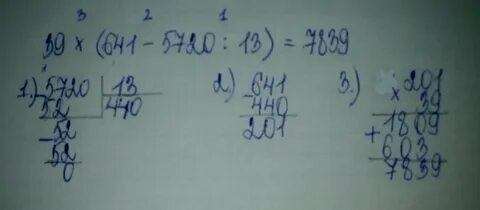 3 2 1
39 × (641 - 5720 : 13) = 7839
1.) 5720 | 13
52 | 440
- 52
52
0
2) 641
- 440
201
3.) 201
× 39
1809
+ 603
7839